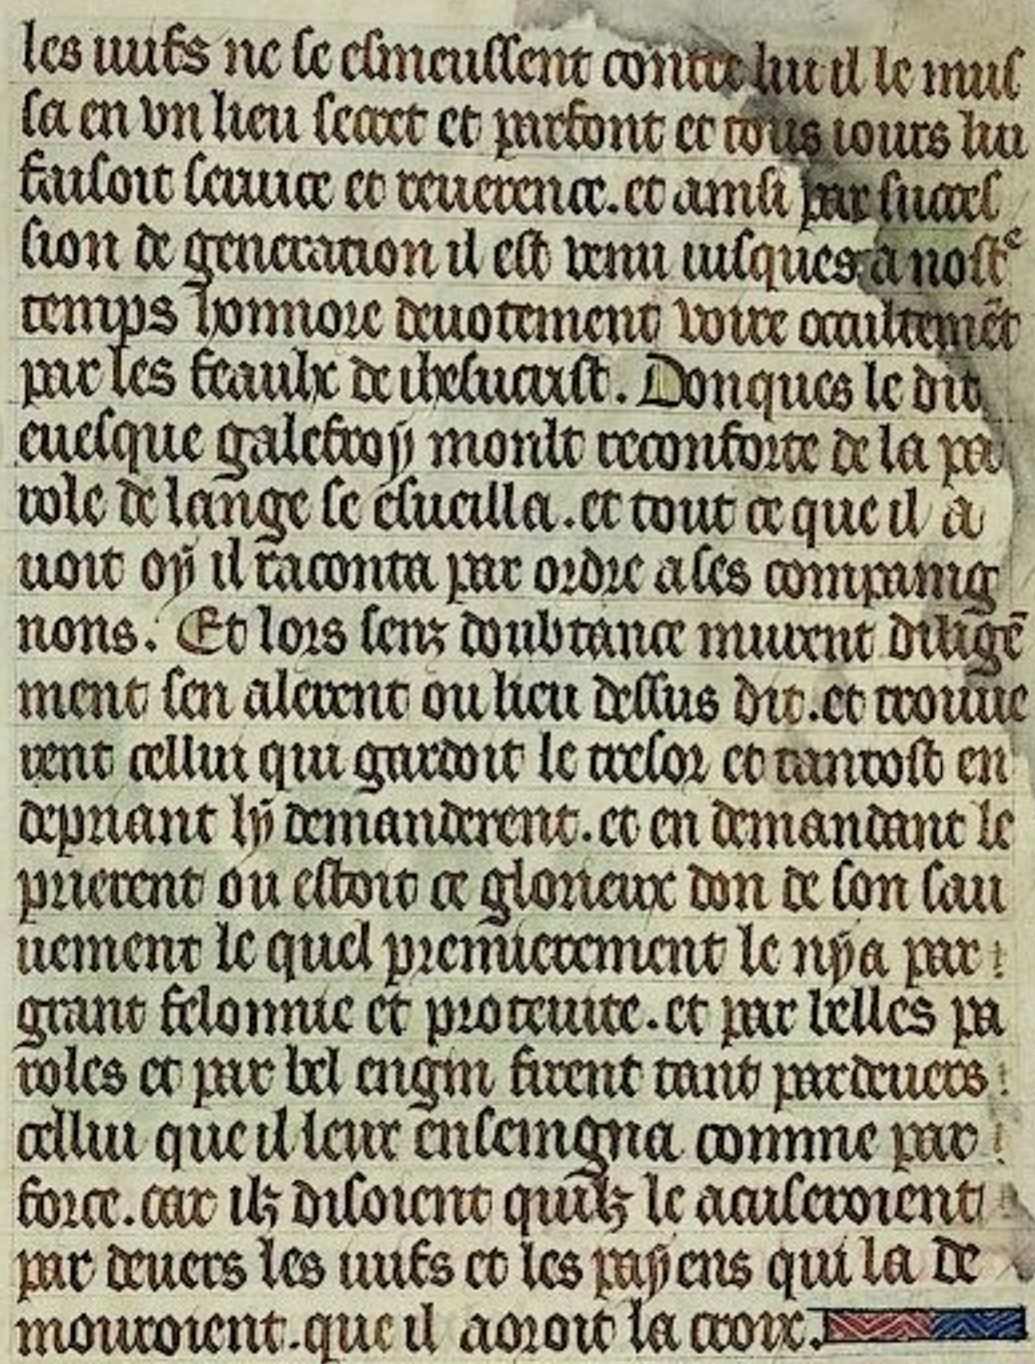 les iuifs ne se esmeussent contre lui il le mus
sa en vn lieu secret et parfont et tous iours lui
faisoit seruice et reuerence. et ainsi par succes
sion de generacion il est venu iusques a nostᵉ
temps honnore deuotement voire occultemēt
par les feaulx de ihesucrist. Donques le dit
euesque galefroÿ moult reconforte de la pa
role de lange se esueilla. et tout ce que il a
uoit oÿ il raconta par ordre a ses compaing
nons. Et lors senz doubtance murent diligē
ment sen alerent ou lieu dessus dit. et trouue
rent cellui qui gardoit le tresor et tantost en
depriant lÿ demanderent. et en demandant le
prierent ou estoit ce glorieux don de son sau
uement le quel premierement le nÿa par
grant felonnie et proteruite. et par belles pa
roles et par bel engin firent tant pardeuers
cellui que il leur enseingna comme par
force. car ilz disoient quilz le acuseroient
par deuers les iuifs et les paÿens qui la de
mouroient. que il aoroit la croix.